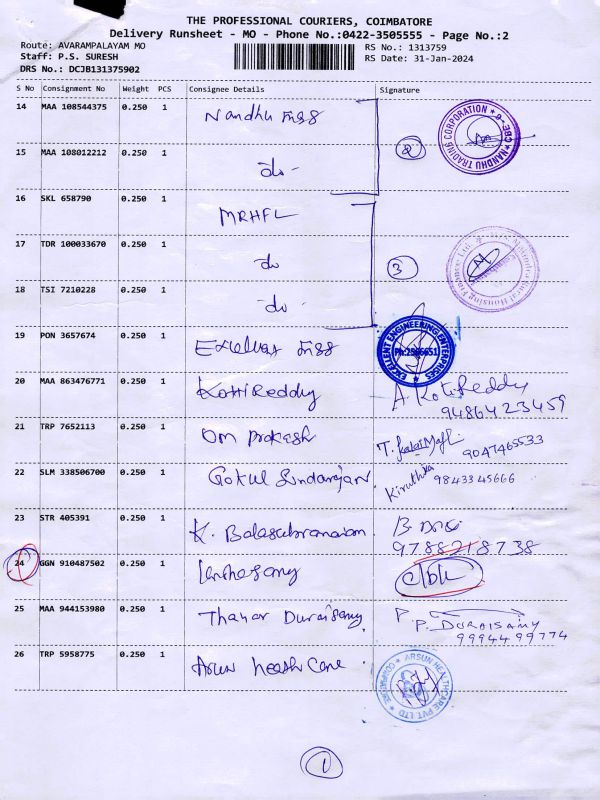 THE PROFESSIONAL COURIERS, COIMBATORE
Delivery Runsheet - MO - Phone No.:0422-3505555 - Page No.:2
Route: AVARAMPALAYAM MO
RS No.: 1313759
Staff: P.S. SURESH
RS Date: 31-Jan-2024
DRS No.: DCJB131375902
S No Consignment No Weight PCS Consignee Details Signature
14 MAA 108544375 0.250 1 Nandhu
NANDHU TRADING CORPORATION * CBE-6 *
2
15 MAA 108012212 0.250 1 do -
16 SKL 658790 0.250 1 MRHFL
17 TDR 100033670 0.250 1 do
3
Rural Housing Finance Ltd.
18 TSI 7210228 0.250 1 do -
19 PON 3657674 0.250 1
EXCELLENT ENGINEERING ENTERPRISES
20 MAA 863476771 0.250 1 Kotti Reddy A. Koti Reddy
9486423459
21 TRP 7652113 0.250 1 Om Prakash T. 9047465533
22 SLM 338506700 0.250 1 Gokul Sundarajan Kiruthika 9843345666
23 STR 405391 0.250 1 K. Balasubramaniam
9788218738
24 GGN 910487502 0.250 1
25 MAA 944153980 0.250 1 Thanar Duraisamy P. DURAISAMY
9994499774
26 TRP 5958775 0.250 1 Arun heath Cane
ARSUN HEALTHCARE PVT LTD * COIMBATORE *
1